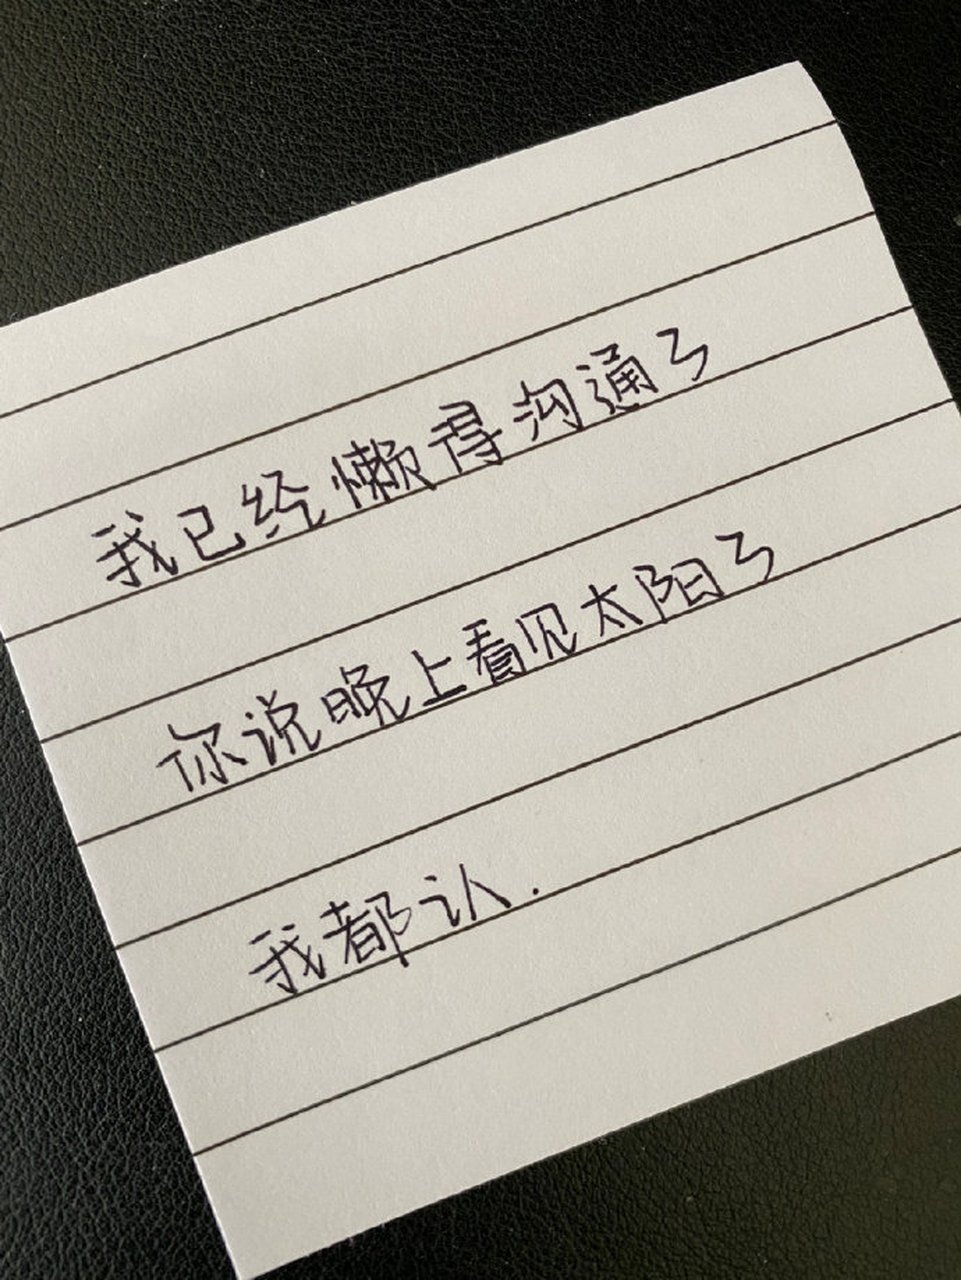 我已经懒得沟通了
你说晚上看见太阳了
我都认.